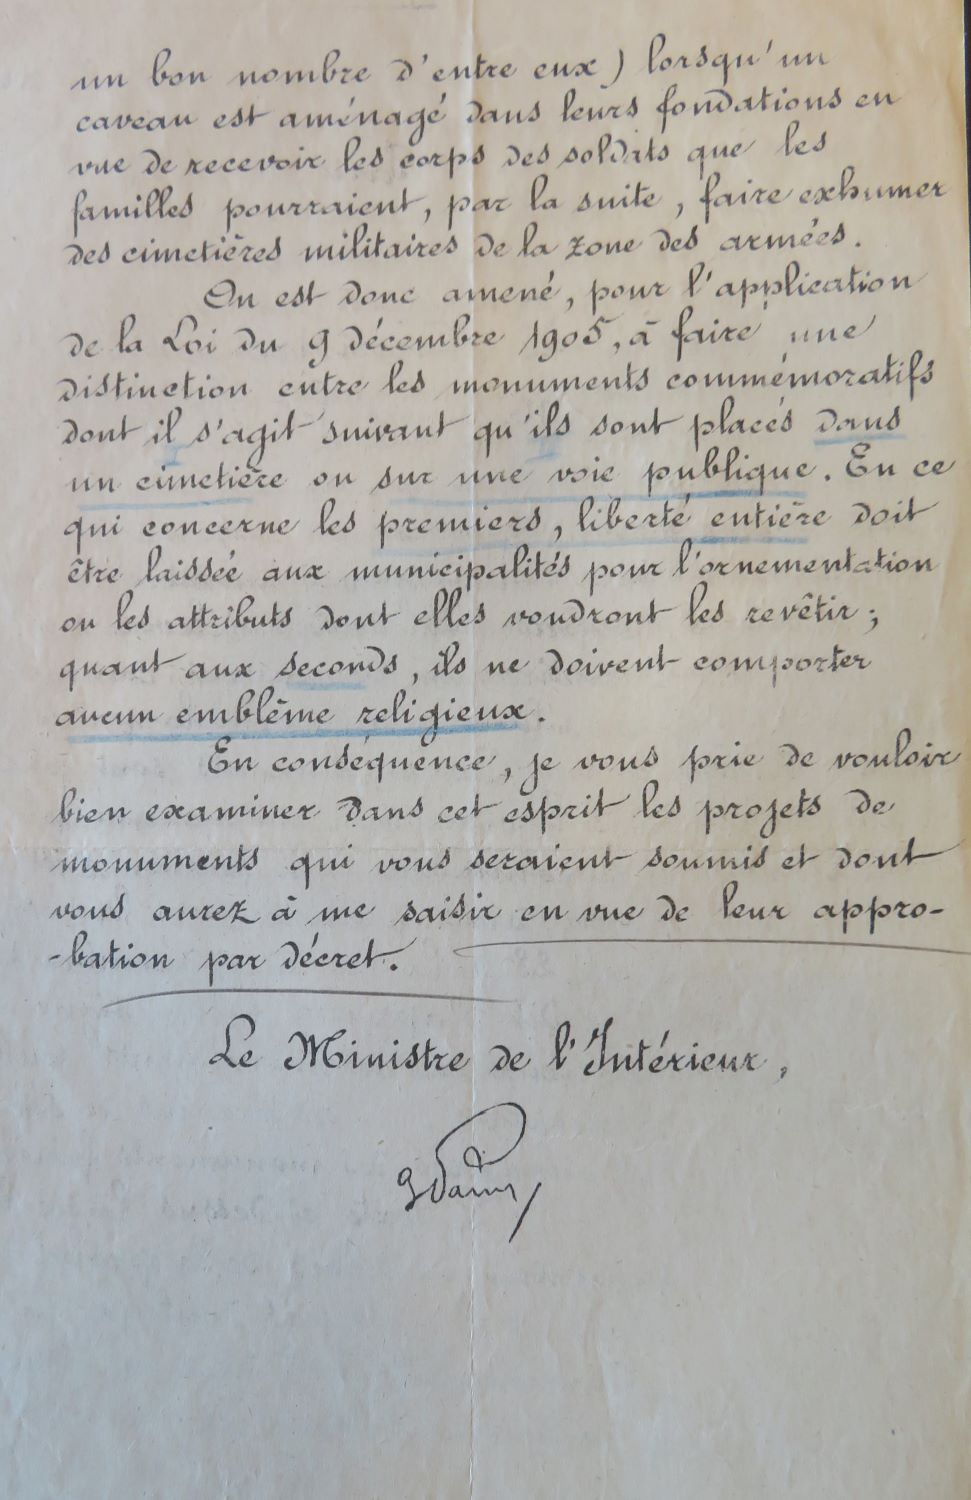 un bon nombre d'entre eux) lorsqu'un
caveau est aménagé dans leurs fondations en
vue de recevoir les corps des soldats que les
familles pourraient, par la suite, faire exhumer
des cimetières militaires de la zone des armées.
On est donc amené, pour l'application
de la Loi du 9 décembre 1905, à faire une
distinction entre les monuments commémoratifs
dont il s'agit suivant qu'ils sont placés dans
un cimetière ou sur une voie publique. En ce
qui concerne les premiers, liberté entière doit
être laissée aux municipalités pour l'ornementation
ou les attributs dont elles voudront les revêtir ;
quant aux seconds, ils ne doivent comporter
aucun emblême religieux.
En conséquence, je vous prie de vouloir
bien examiner dans cet esprit les projets de
monuments qui vous seraient soumis et dont
vous aurez à me saisir en vue de leur appro-
-bation par décret.
Le Ministre de l'Intérieur,